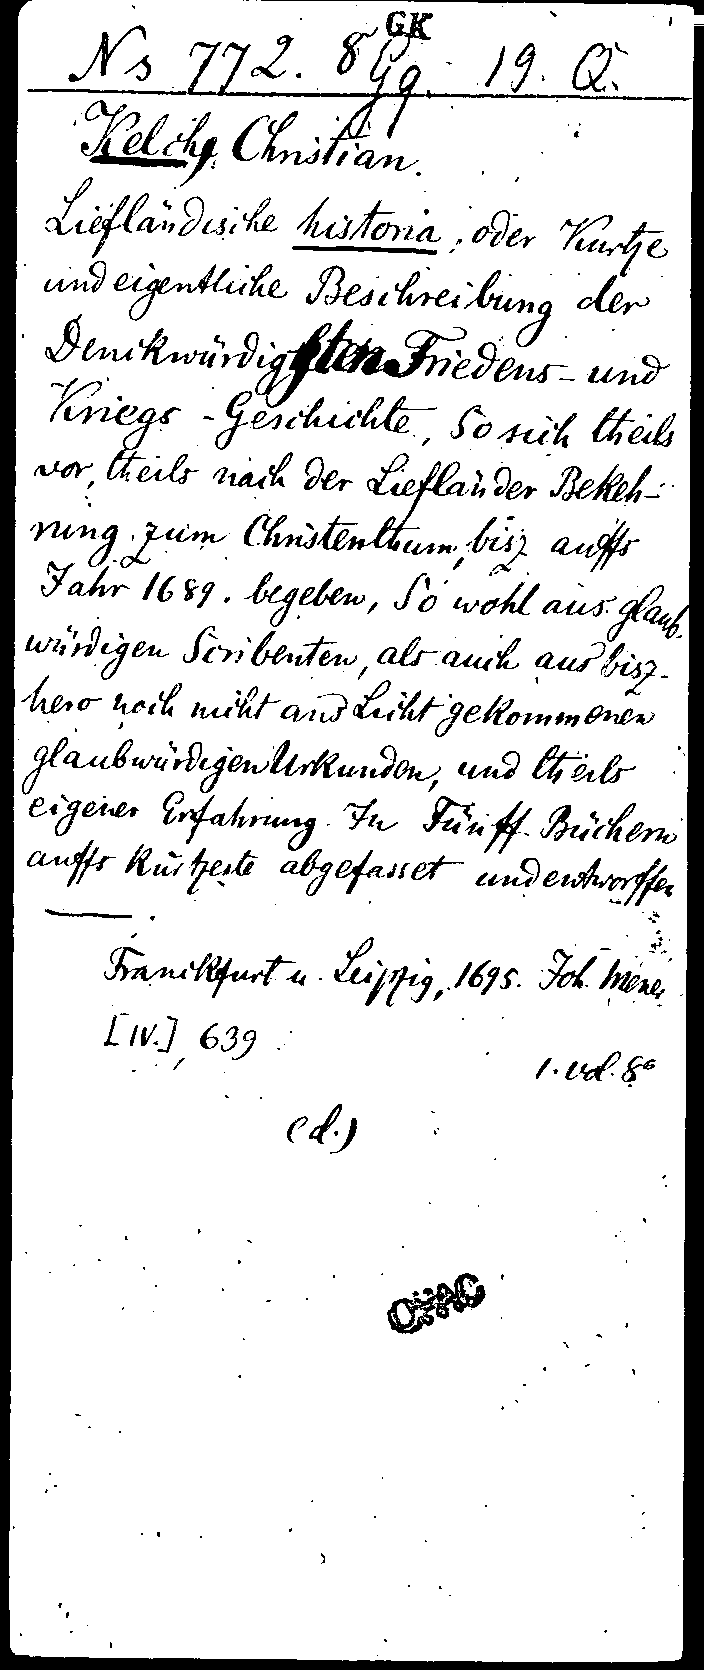 GK
Ns 772. 8° Gg. 19. Q.
Kelch, Christian.
Liefländische historia, oder Kurtze
und eigentliche Beschreibung der
Denckwürdigsten Friedens- und
Kriegs-Geschichte, So sich theils
vor, theils nach der Liefländer Bekeh-
rung zum Christenthum, bisz auffs
Jahr 1689. begeben, So wohl aus glaub-
würdigen Scribenten, als auch aus bisz-
hero noch nicht ans Licht gekommenen
glaubwürdigen Urkunden, und theils
eigener Erfahrung In Fünff Büchern
auffs kürtzeste abgefasset und entworffen
Franckfurt u. Leipzig, 1695. Joh.
[IV.], 639
1. vol. 8°
(d.)